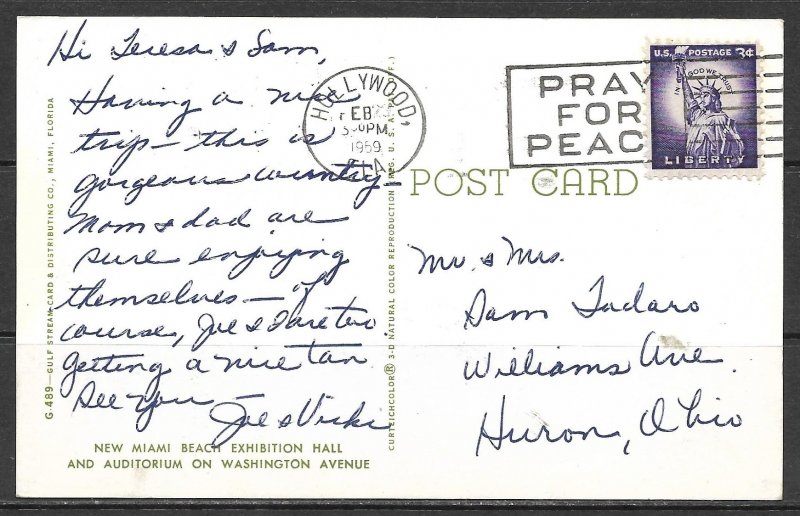 Hi Teresa & Sam,
Having a nice
trip — this is
gorgeous country
Mom & dad are
sure enjoying
themselves — of
course, Joe & I are too.
getting a nice tan
See you —
Joe & Vicki
NEW MIAMI BEACH EXHIBITION HALL
AND AUDITORIUM ON WASHINGTON AVENUE
G.489—GULF STREAM CARD & DISTRIBUTING CO., MIAMI, FLORIDA
CURTEICHCOLOR® 3-D NATURAL COLOR REPRODUCTION (REG. U.S.A. PAT. OFF.)
HOLLYWOOD,
FEB
PM
1959
FLA
PRAY
FOR
PEAC
U.S. POSTAGE 3¢
IN GOD WE TRUST
LIBERTY
POST CARD
Mr. & Mrs.
Sam Tadaro
Williams Ave.
Huron, Ohio